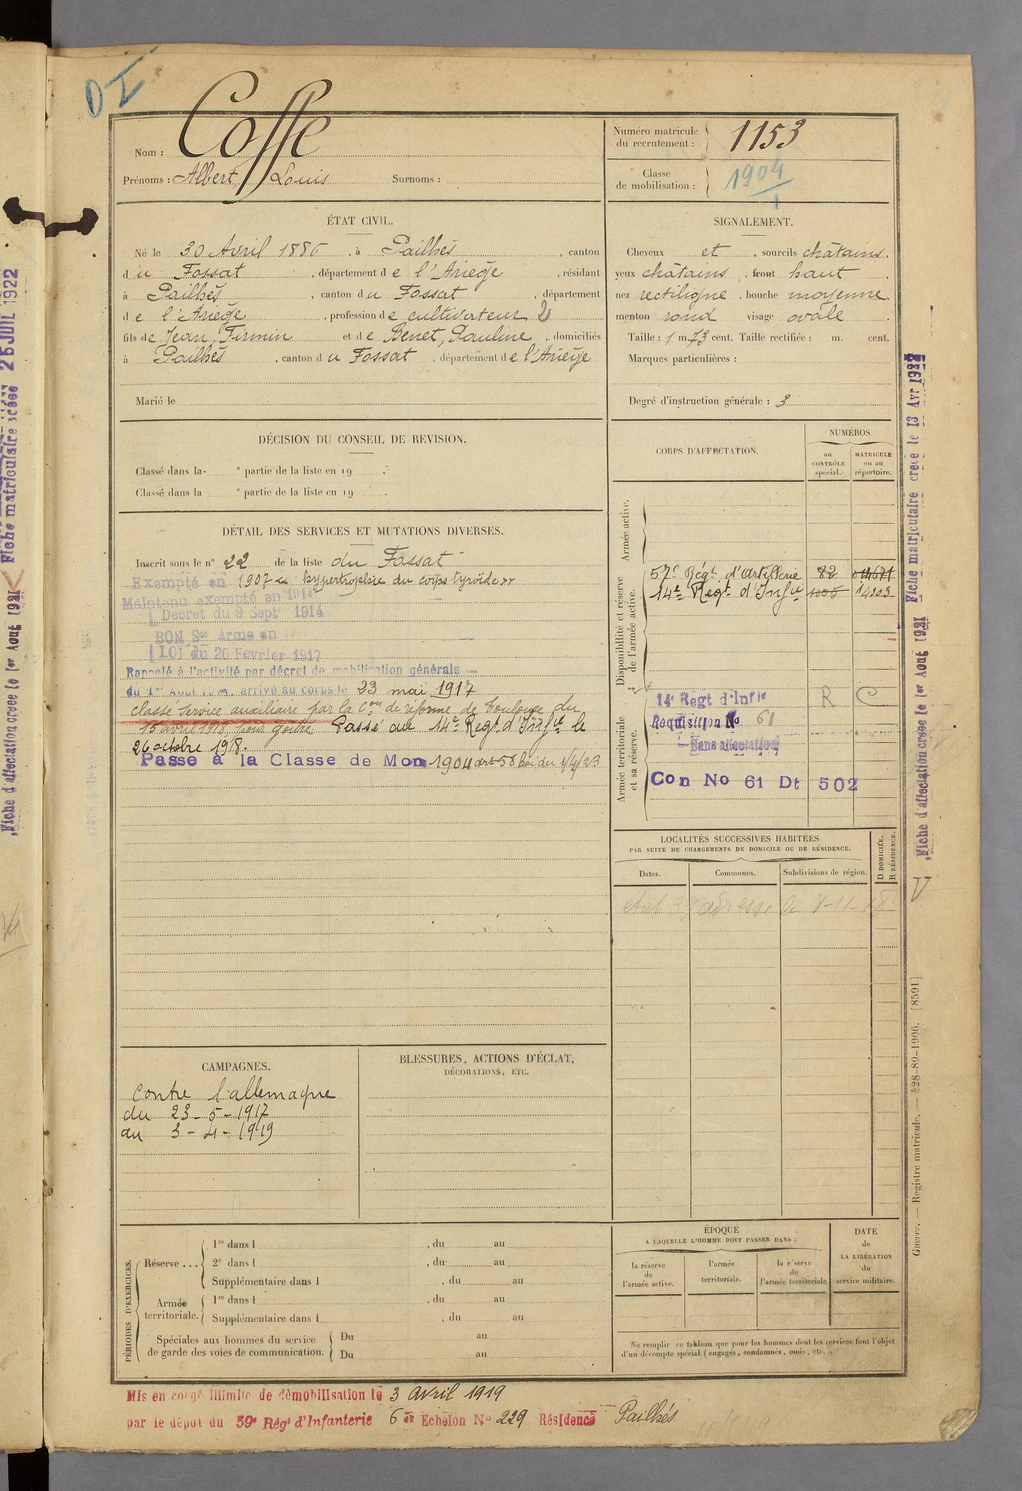 Nom : Coffe
Prénoms : Albert Louis Surnoms :
Numéro matricule du recrutement : 1153
Classe de mobilisation : 1904
ÉTAT CIVIL.
Né le 30 Avril 1886, à Pailhès, canton
du Fossat, département de l'Ariège, résidant
à Pailhès, canton du Fossat, département
de l'Ariège, profession de cultivateur 2
fils de Jean, Firmin et de Benet, Pauline, domiciliés
à Pailhès, canton du Fossat, département de l'Ariège
Marié le
SIGNALEMENT.
Cheveux et, sourcils châtains.
yeux châtains, front haut,
nez rectiligne, bouche moyenne,
menton rond visage ovale
Taille : 1 m. 73 cent. Taille rectifiée : m. cent.
Marques particulières :
Degré d'instruction générale : 3
DÉCISION DU CONSEIL DE REVISION.
Classé dans la e partie de la liste en 19 .
Classé dans la e partie de la liste en 19 .
DÉTAIL DES SERVICES ET MUTATIONS DIVERSES.
Inscrit sous le n° 22 de la liste du Fossat
Exempté en 1907 hypertrophie du corps tyroïde
Maintenu exempté en 1914
Décret du 9 Sept 1914
BON Sce Armé en
du 20 Février 1917
Rappelé à l'activité par décret de mobilisation générale
du 1er Août, arrivé au corps le 23 mai 1917
Classé Service auxiliaire par la Con de réforme de Toulouse du
15 avril 1918, pour goitre. Passé au 14e Regt d'Infie le
26 octobre 1918.
Passé à la Classe de Mon 1904 art 58 loi du 1/4/23
CORPS D'AFFECTATION.
NUMÉROS
au CONTRÔLE spécial.
MATRICULE ou au répertoire.
Armée active.
Disponibilité et réserve de l'armée active.
57e Régt d'artillerie 82
14e Regt d'Infie
Armée territoriale et sa réserve.
14e Regt d'Infie R C
Réquisition No 61
Sans affectation
Con No 61 Dt 502
LOCALITÉS SUCCESSIVES HABITÉES
PAR SUITE DE CHANGEMENTS DE DOMICILE OU DE RÉSIDENCE.
Dates. Communes. Subdivisions de région.
D DOMICILE.
R RÉSIDENCE.
CAMPAGNES.
Contre l'allemagne
du 23-5-1917
au 3-4-1919
BLESSURES, ACTIONS D'ÉCLAT,
DÉCORATIONS, ETC.
PÉRIODES D'EXERCICES.
Réserve ...
1re dans l , du au
2e dans l , du au
Supplémentaire dans l , du au
Armée territoriale.
1re dans l , du au
Supplémentaire dans l , du au
Spéciales aux hommes du service de garde des voies de communication.
Du au
Du au
ÉPOQUE
A LAQUELLE L'HOMME DOIT PASSER DANS :
la réserve de l'armée active.
l'armée territoriale.
la réserve de l'armée territoriale
DATE de LA LIBÉRATION du service militaire.
Ne remplir ce tableau que pour les hommes dont les services font l'objet
d'un décompte spécial (engagés, condamnés, omis, etc.)
Mis en congé illimité de démobilisation le 3 avril 1919
par le dépôt du 59e Régt d'Infanterie 6e Echelon No 229 Résidence Pailhès
Fiche d'affectation créée le 1er Août 1921 Fiche matriculaire créée 26 JUIL 1922
Fiche d'affectation créée le 1er Août 1921 Fiche matriculaire créée le 13 Avr 1922
Guerre. — Registre matricule. — 428-89-1906. [8591]